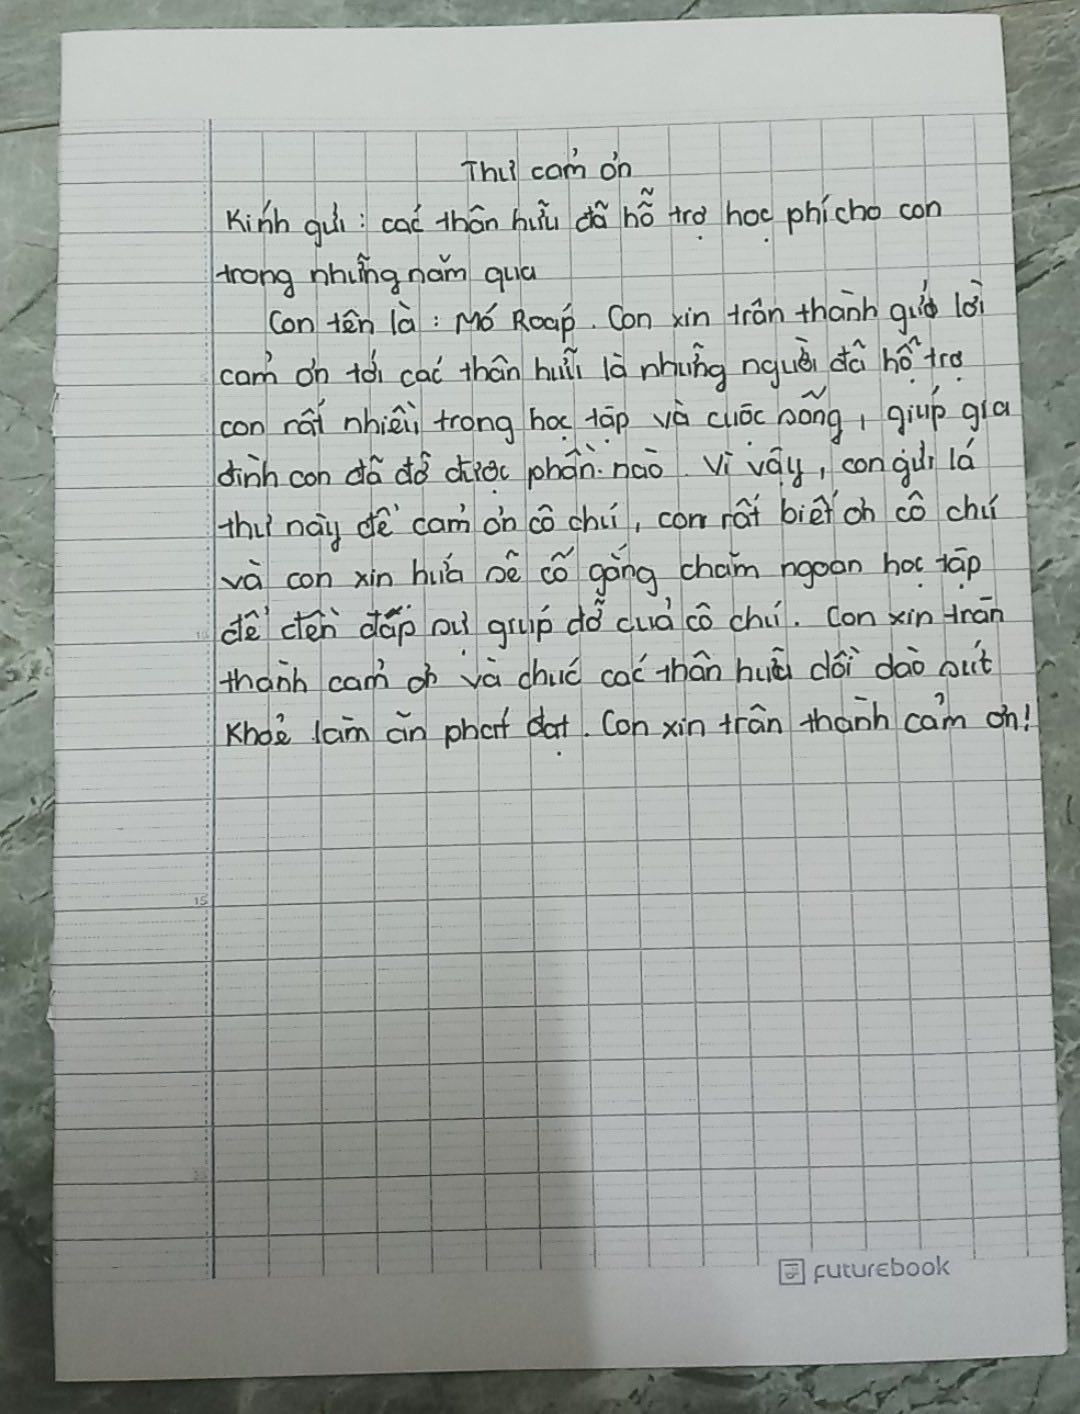 Thư cảm ơn
Kính gửi: các thân hữu đã hỗ trợ học phí cho con
trong những năm qua
Con tên là: Mó Roáp. Con xin trân thành gửi lời
cảm ơn tới các thân hữu là những người đã hỗ trợ
con rất nhiều trong học tập và cuộc sống, giúp gia
đình con đã đỡ được phần nào. Vì vậy, con gửi lá
thư này để cảm ơn cô chú, con rất biết ơn cô chú
và con xin hứa sẽ cố gắng chăm ngoan học tập
để đền đáp sự giúp đỡ của cô chú. Con xin trân
thành cảm ơn và chúc các thân hữu dồi dào sức
khoẻ làm ăn phát đạt. Con xin trân thành cảm ơn!
15
futurebook